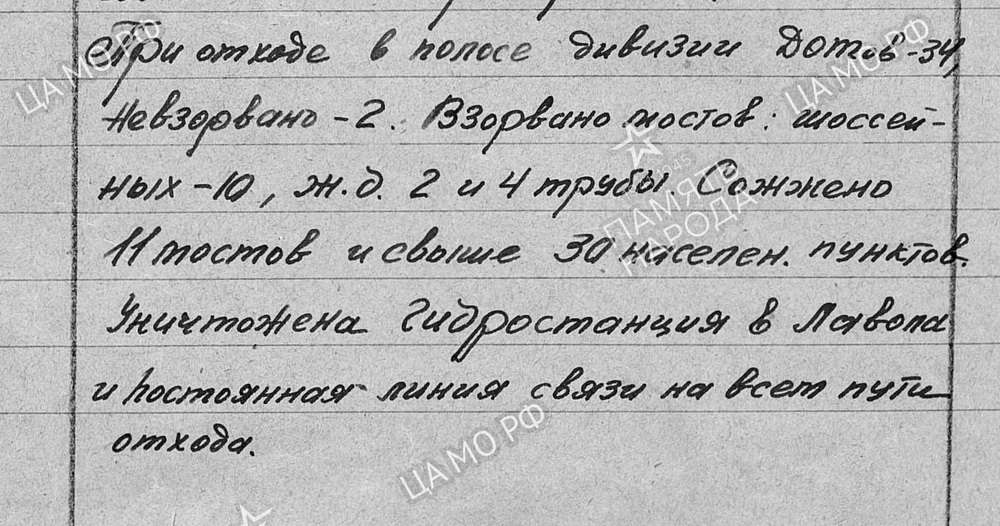 При отходе в полосе дивизии Дотов-34,
Невзорвано - 2. Взорвано мостов: шоссей-
ных - 10, ж.д. 2 и 4 трубы. Сожжено
11 мостов и свыше 30 населен. пунктов.
Уничтожена Гидростанция в Лавола
и постоянная линия связи на всем пути
отхода.
ЦА МО РФ
ЦА МО РФ
ПАМЯТЬ
НАРОДА
ЦА МО РФ